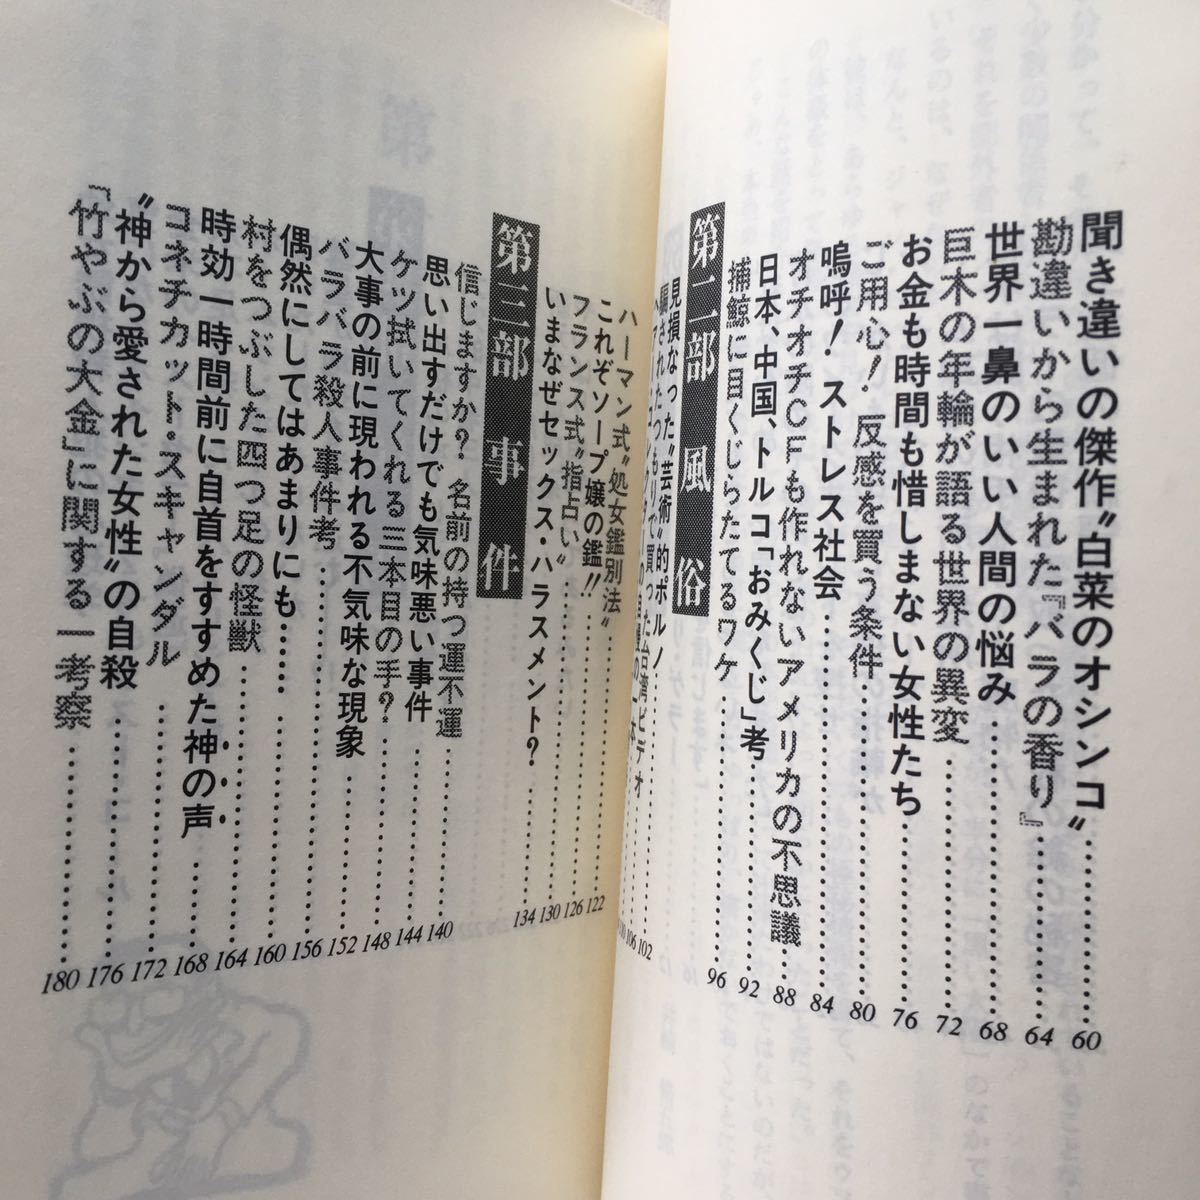 聞き違いの傑作〝白菜のオシンコ〟 60
勘違いから生まれた『バラの香り』 64
世界一鼻のいい人間の悩み 68
巨木の年輪が語る世界の異変 72
お金も時間も惜しまない女性たち 76
ご用心！反感を買う条件 80
嗚呼！ストレス社会 84
オチオチCFも作れないアメリカの不思議 88
日本、中国、トルコ「おみくじ」考 92
捕鯨に目くじらたてるワケ 96
第二部 風俗
見損なった〝芸術〟的ポルノ 102
騙されたつもりで買った台湾ビデオ 106
ハーマン式〝処女鑑別法〟 122
これぞソープ嬢の鑑!! 126
フランス式〝指占い〟 130
いまなぜセックス・ハラスメント？ 134
第三部 事件
信じますか？名前の持つ運不運 140
思い出すだけでも気味悪い事件 144
ケツ拭いてくれる三本目の手？ 148
大事の前に現われる不気味な現象 152
バラバラ殺人事件考 156
偶然にしてはあまりにも…… 160
村をつぶした四つ足の怪獣 164
時効一時間前に自首をすすめた神の声 168
コネチカット・スキャンダル 172
〝神から愛された女性〟の自殺 176
「竹やぶの大金」に関する一考察 180